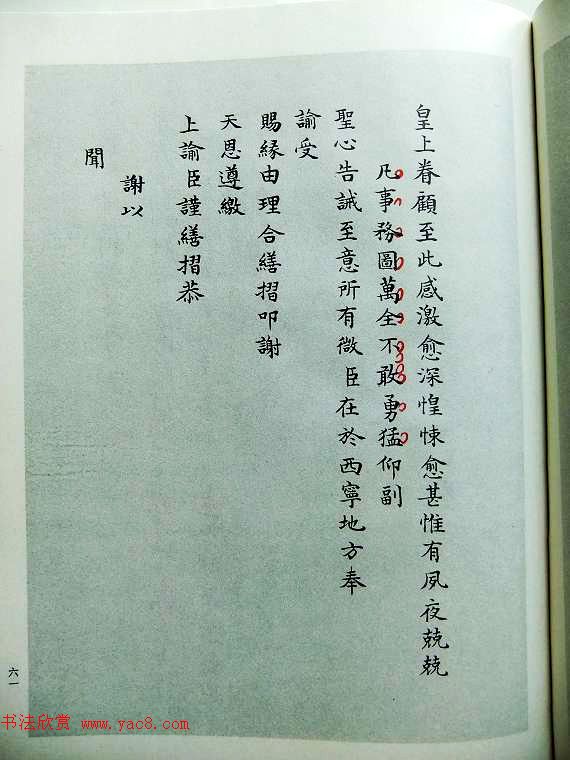 皇上眷顧至此感激愈深惶悚愈甚惟有夙夜兢兢
凡事務圖萬全不敢勇猛仰副
聖心告誡至意所有微臣在於西寧地方奉
諭受
賜緣由理合繕摺叩謝
天恩遵繳
上諭臣謹繕摺恭
謝以
聞
六一
书法欣赏 www.yac8.com